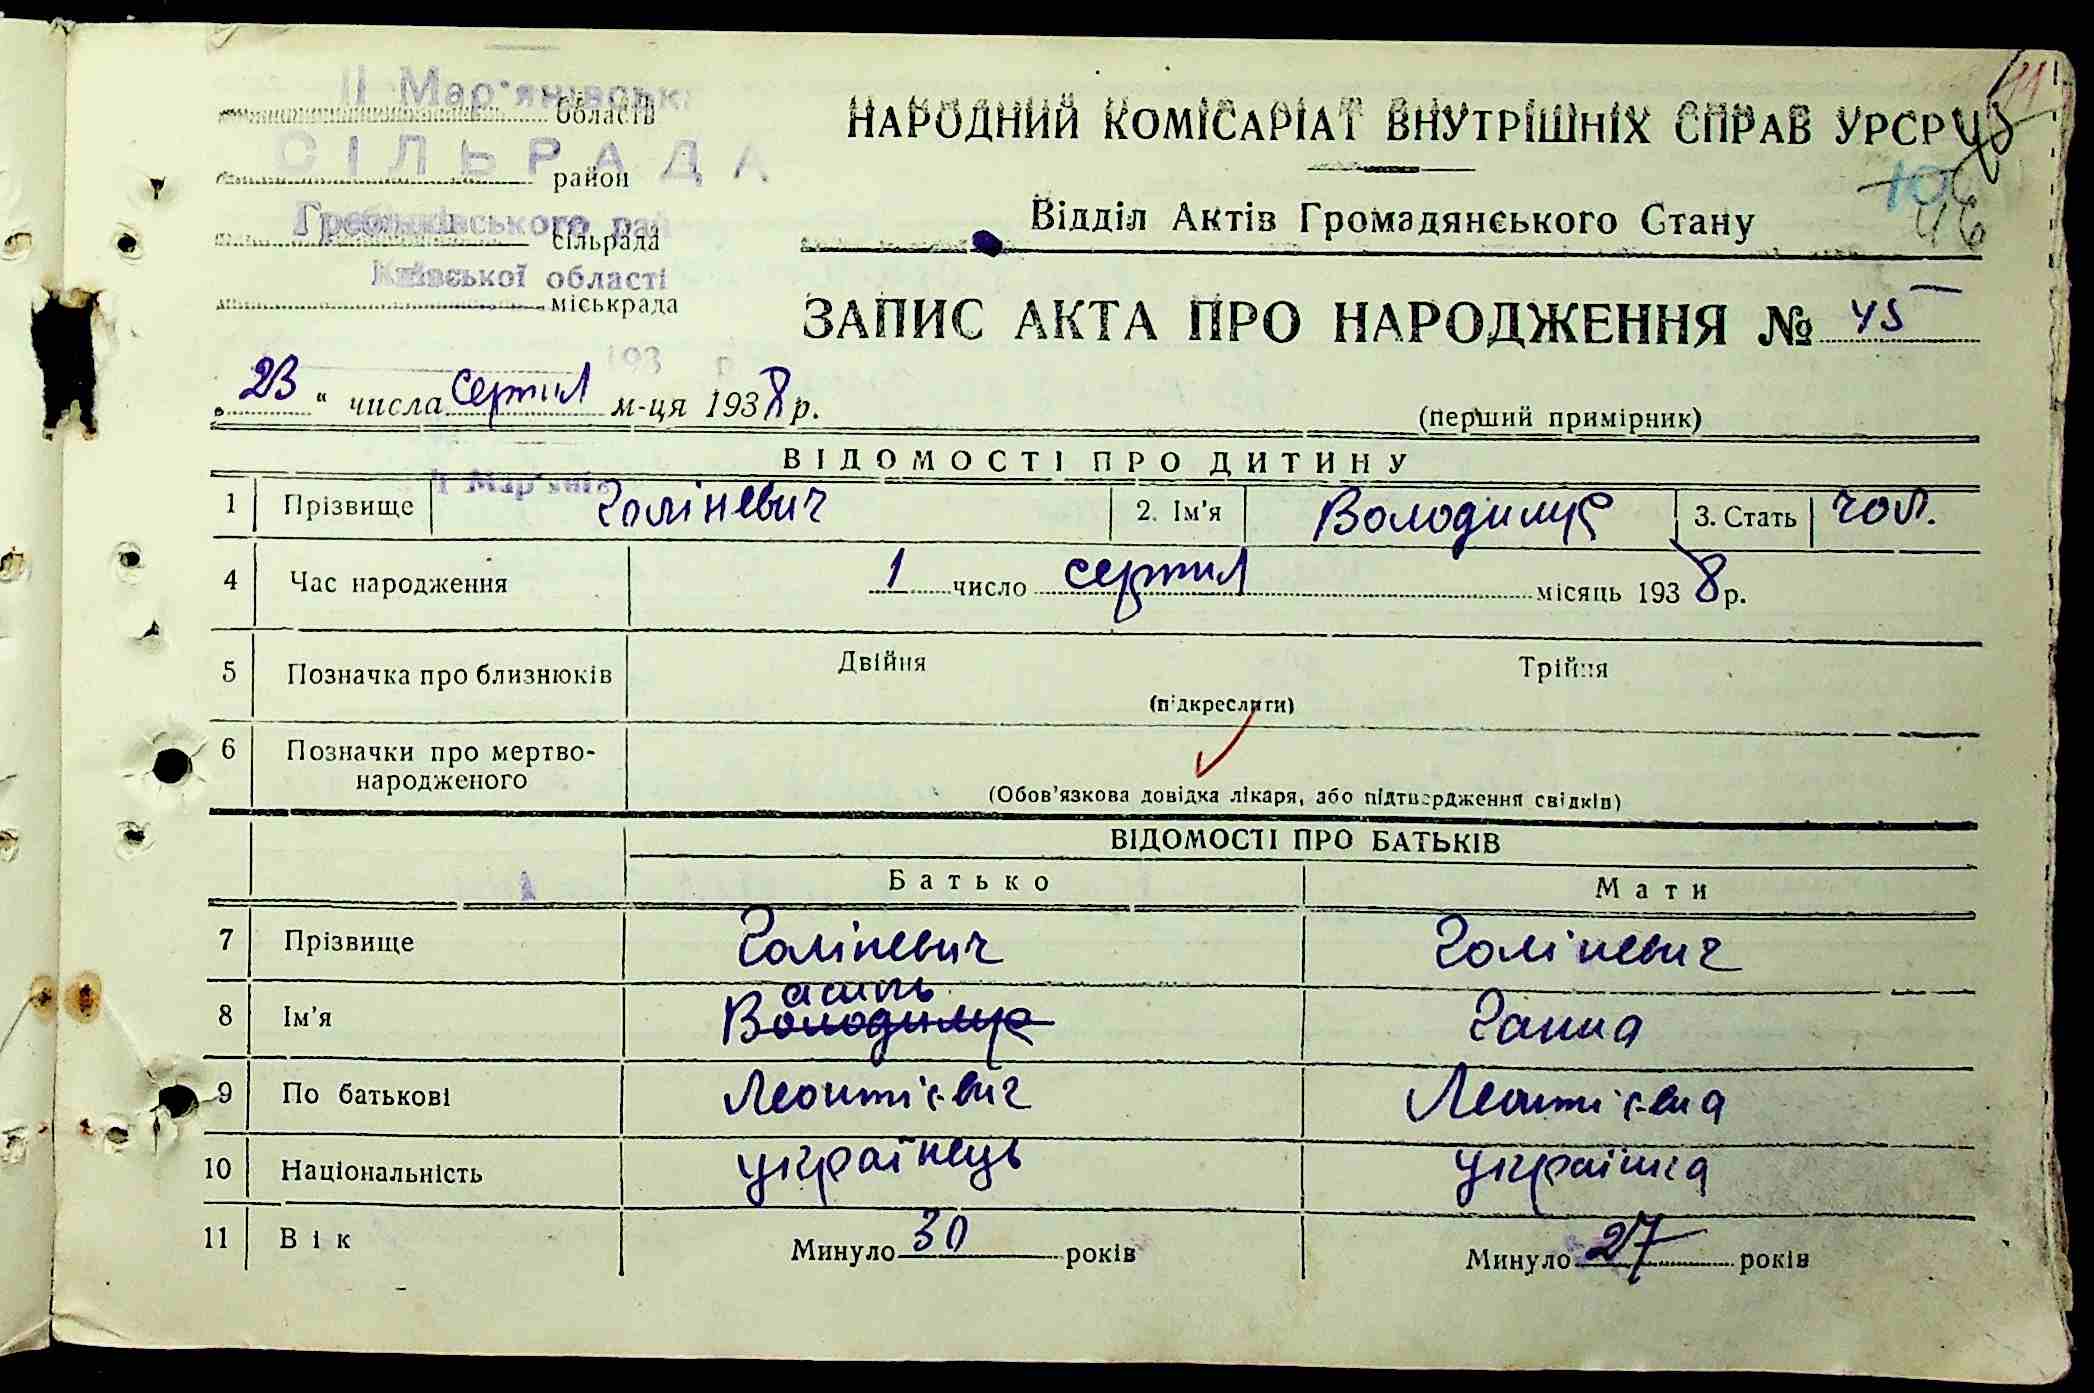 ІІ Мар'янівськ
області
СІЛЬРАДА
район
Гребінківського рай
сільрада
Київської області
міськрада
193 р
НАРОДНИЙ КОМІСАРІАТ ВНУТРІШНІХ СПРАВ УРСР
Відділ Актів Громадянського Стану
46
ЗАПИС АКТА ПРО НАРОДЖЕННЯ № 45
„23“ числа серпня м-ця 1938 р.
(перший примірник)
ВІДОМОСТІ ПРО ДИТИНУ
1 Прізвище Голіневич 2. Ім'я Володимир 3. Стать чол.
4 Час народження 1 число серпня місяць 1938 р.
5 Позначка про близнюків Двійня Трійня
(підкреслити)
6 Позначки про мертво-
народженого
(Обов'язкова довідка лікаря, або підтвердження свідків)
ВІДОМОСТІ ПРО БАТЬКІВ
Батько Мати
7 Прізвище Голіневич Голіневич
асиль
8 Ім'я Володимир Ганна
9 По батькові Леонтієвич Леонтієвна
10 Національність українець українка
11 Вік Минуло 30 років Минуло 27 років